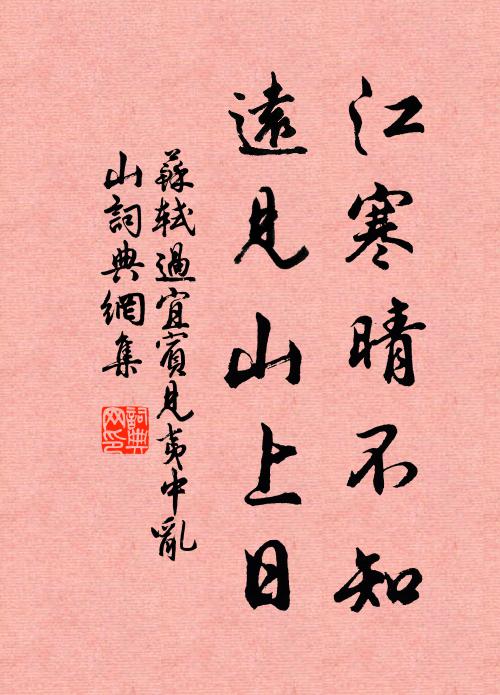 江寒晴不知
遠見山上日
蘇軾過宜賓見夷中亂
山詞典網集
詞典
网印